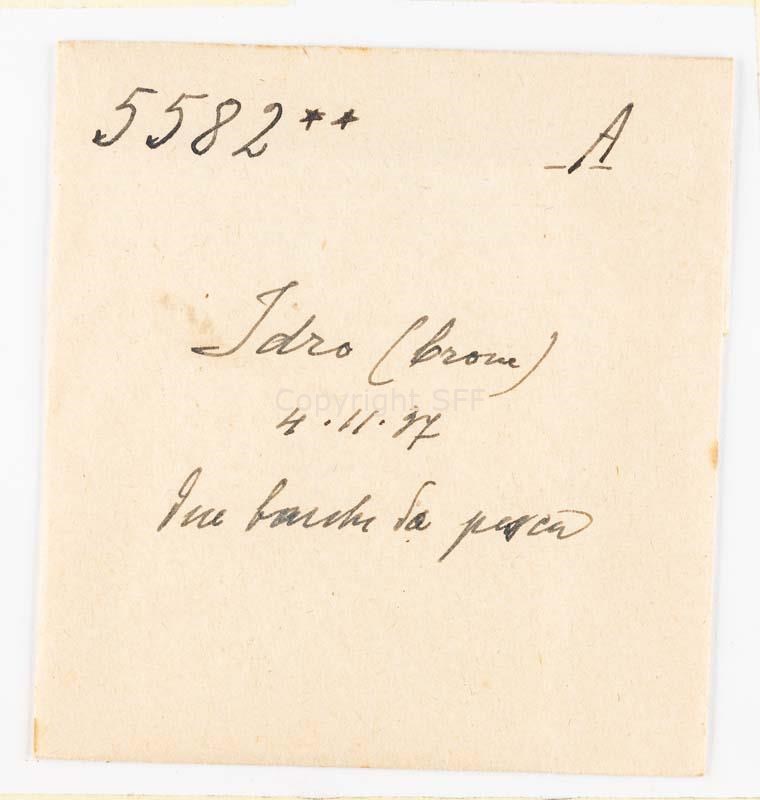 5582** A
Idro (Crone)
Copyright SFF
4.11.37
Due barche da pesca